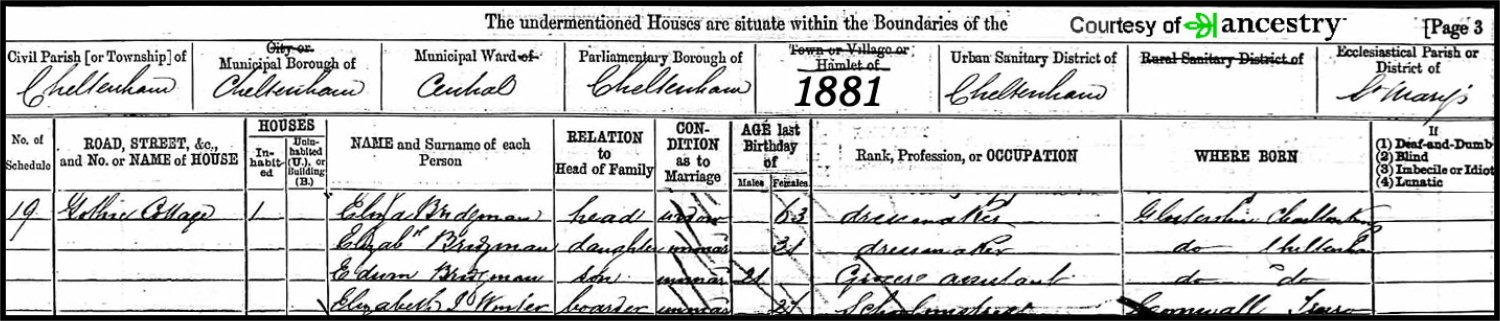 The undermentioned Houses are situate within the Boundaries of the Courtesy of ancestry [Page 3
Civil Parish [or Township] of City or Municipal Borough of Municipal Ward of Parliamentary Borough of Town or Village or Hamlet of Urban Sanitary District of Rural Sanitary District of Ecclesiastical Parish or District of
Cheltenham Cheltenham Central Cheltenham 1881 Cheltenham St Mary's
No. of Schedule ROAD, STREET, &c., and No. or NAME of HOUSE HOUSES In-habit-ed Unin-habited (U.), or Building (B.) NAME and Surname of each Person RELATION to Head of Family CON-DITION as to Marriage AGE last Birthday of Males Females Rank, Profession, or OCCUPATION WHERE BORN If (1) Deaf-and-Dumb (2) Blind (3) Imbecile or Idiot (4) Lunatic
19 Gothic Cottage 1 Eliza Bridgman head widow 63 dressmaker Glostershire
Elizabth Bridgman daughter unmar 31 dressmaker do Cheltenham
Edwin Bridgman son unmar 21 Grocers assistant do do
Elizabeth J Winter boarder unmar Schoolmistress Cornwall Truro